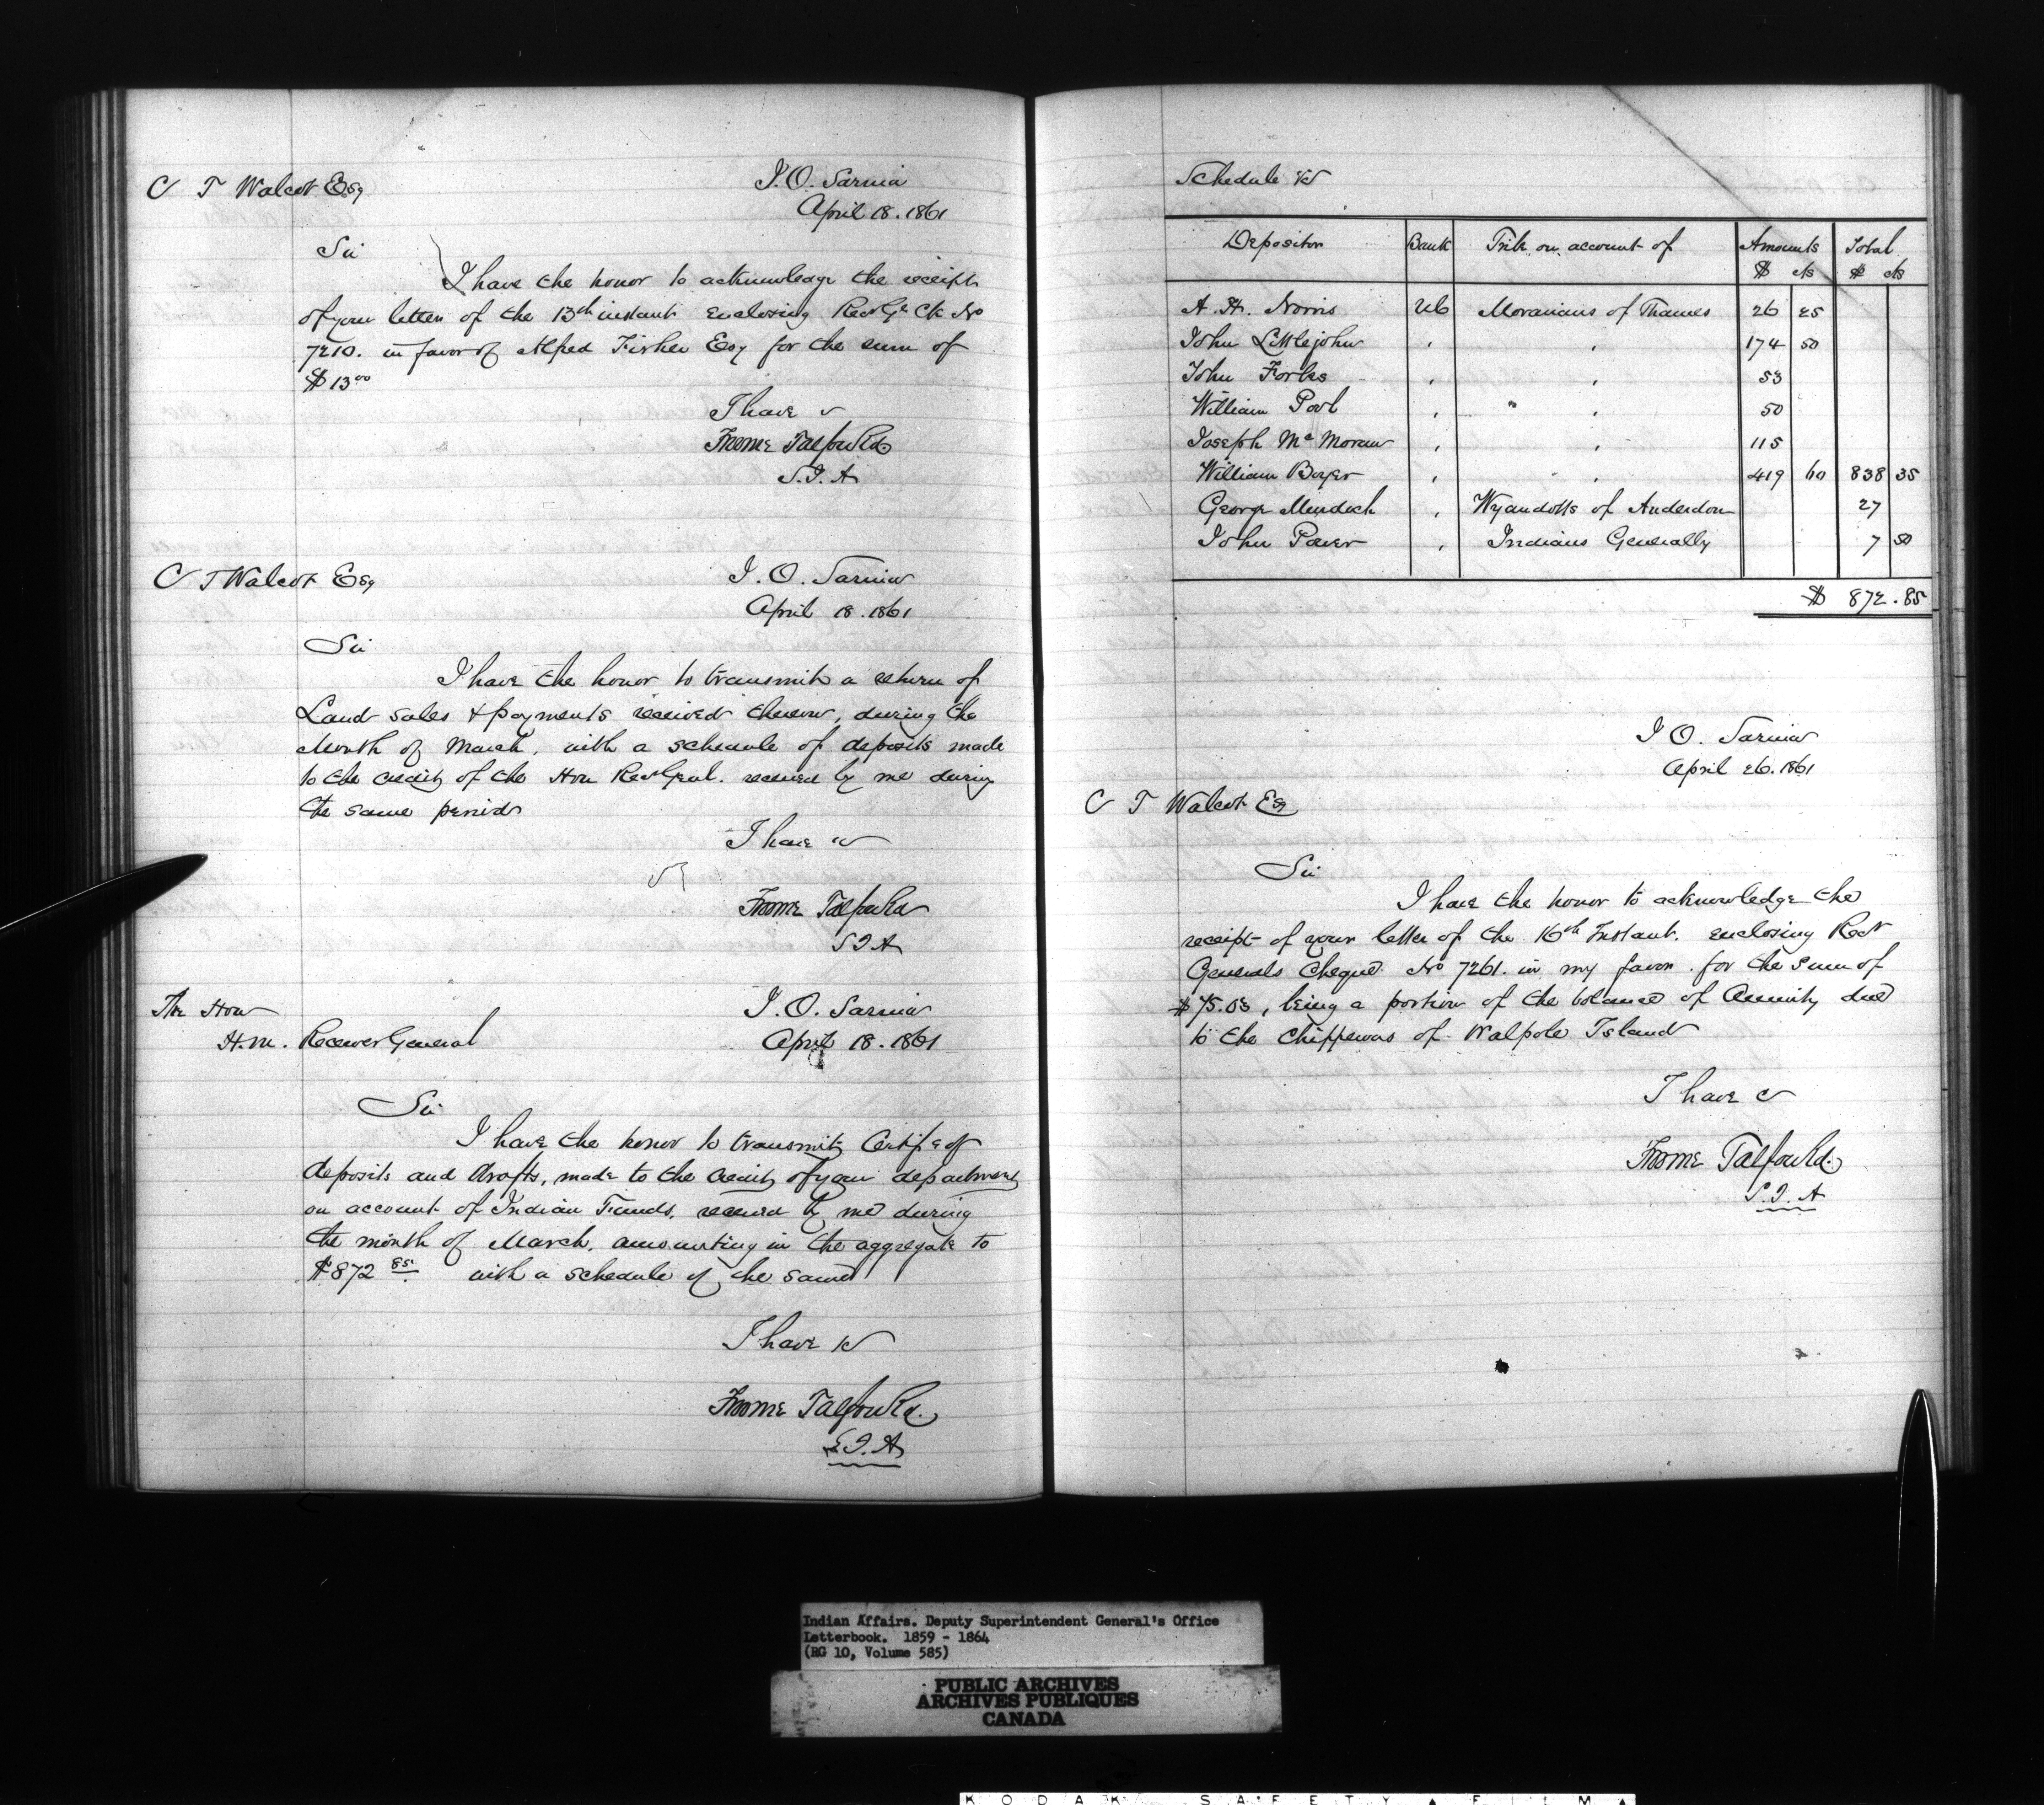 C T Walcot Esq
I.O. Sarnia
April 18. 1861
Sir
I have the honor to acknowledge the receipt
of your letter of the 13th instant enclosing Recr Gl Ck No
7210. in favor of Alfred Fisher Esq for the sum of
$13 00
I have &c
Froome Talfourd
S.I.A
C T Walcot Esq
I.O. Sarnia
April 18. 1861
Sir
I have the honor to transmit a return of
Land sales & payments received thereon, during the
Month of March, with a schedule of deposits made
to the credit of the Hon Recr Genl. received by me during
the same period
I have &c
Froome Talfourd
S I A
The Hon
H.M. Receiver General
I.O. Sarnia
April 18. 1861
Sir
I have the honor to transmit Certifs of
deposits and drafts, made to the credit of your department
on account of Indian Funds, received by me during
the month of March, amounting in the aggregate to
$872 85 with a schedule of the same
I have &c
Froome Talfourd.
S.I.A
Schedule &c
Depositor Bank Tribe on account of Amounts Total
$ cts $ cts
A. H. Norris UC Moravians of Thames 26 25
John Littlejohn " " 174 50
John Forbs " " 53
William Pool " " 50
Joseph Mc Moran " " 115
William Boyer " " 419 60 838 35
George Murdoch " Wyandotts of Anderdon 27
John Power " Indians Generally 7 50
$ 872.85
I O. Sarnia
April 26. 1861
C T Walcot Esq
Sir
I have the honor to acknowledge the
receipt of your letter of the 16th Instant. enclosing Recr
Generals Cheque No 7261. in my favor. for the sum of
$75.03, being a portion of the balance of Annuity due
to the Chippewas of Walpole Island
I have &c
Froome Talfourd.
S.I.A
Indian Affairs. Deputy Superintendent General's Office
Letterbook. 1859 - 1864
(RG 10, Volume 585)
PUBLIC ARCHIVES
ARCHIVES PUBLIQUES
CANADA
KODAK SAFETY ▲ FILM ▲